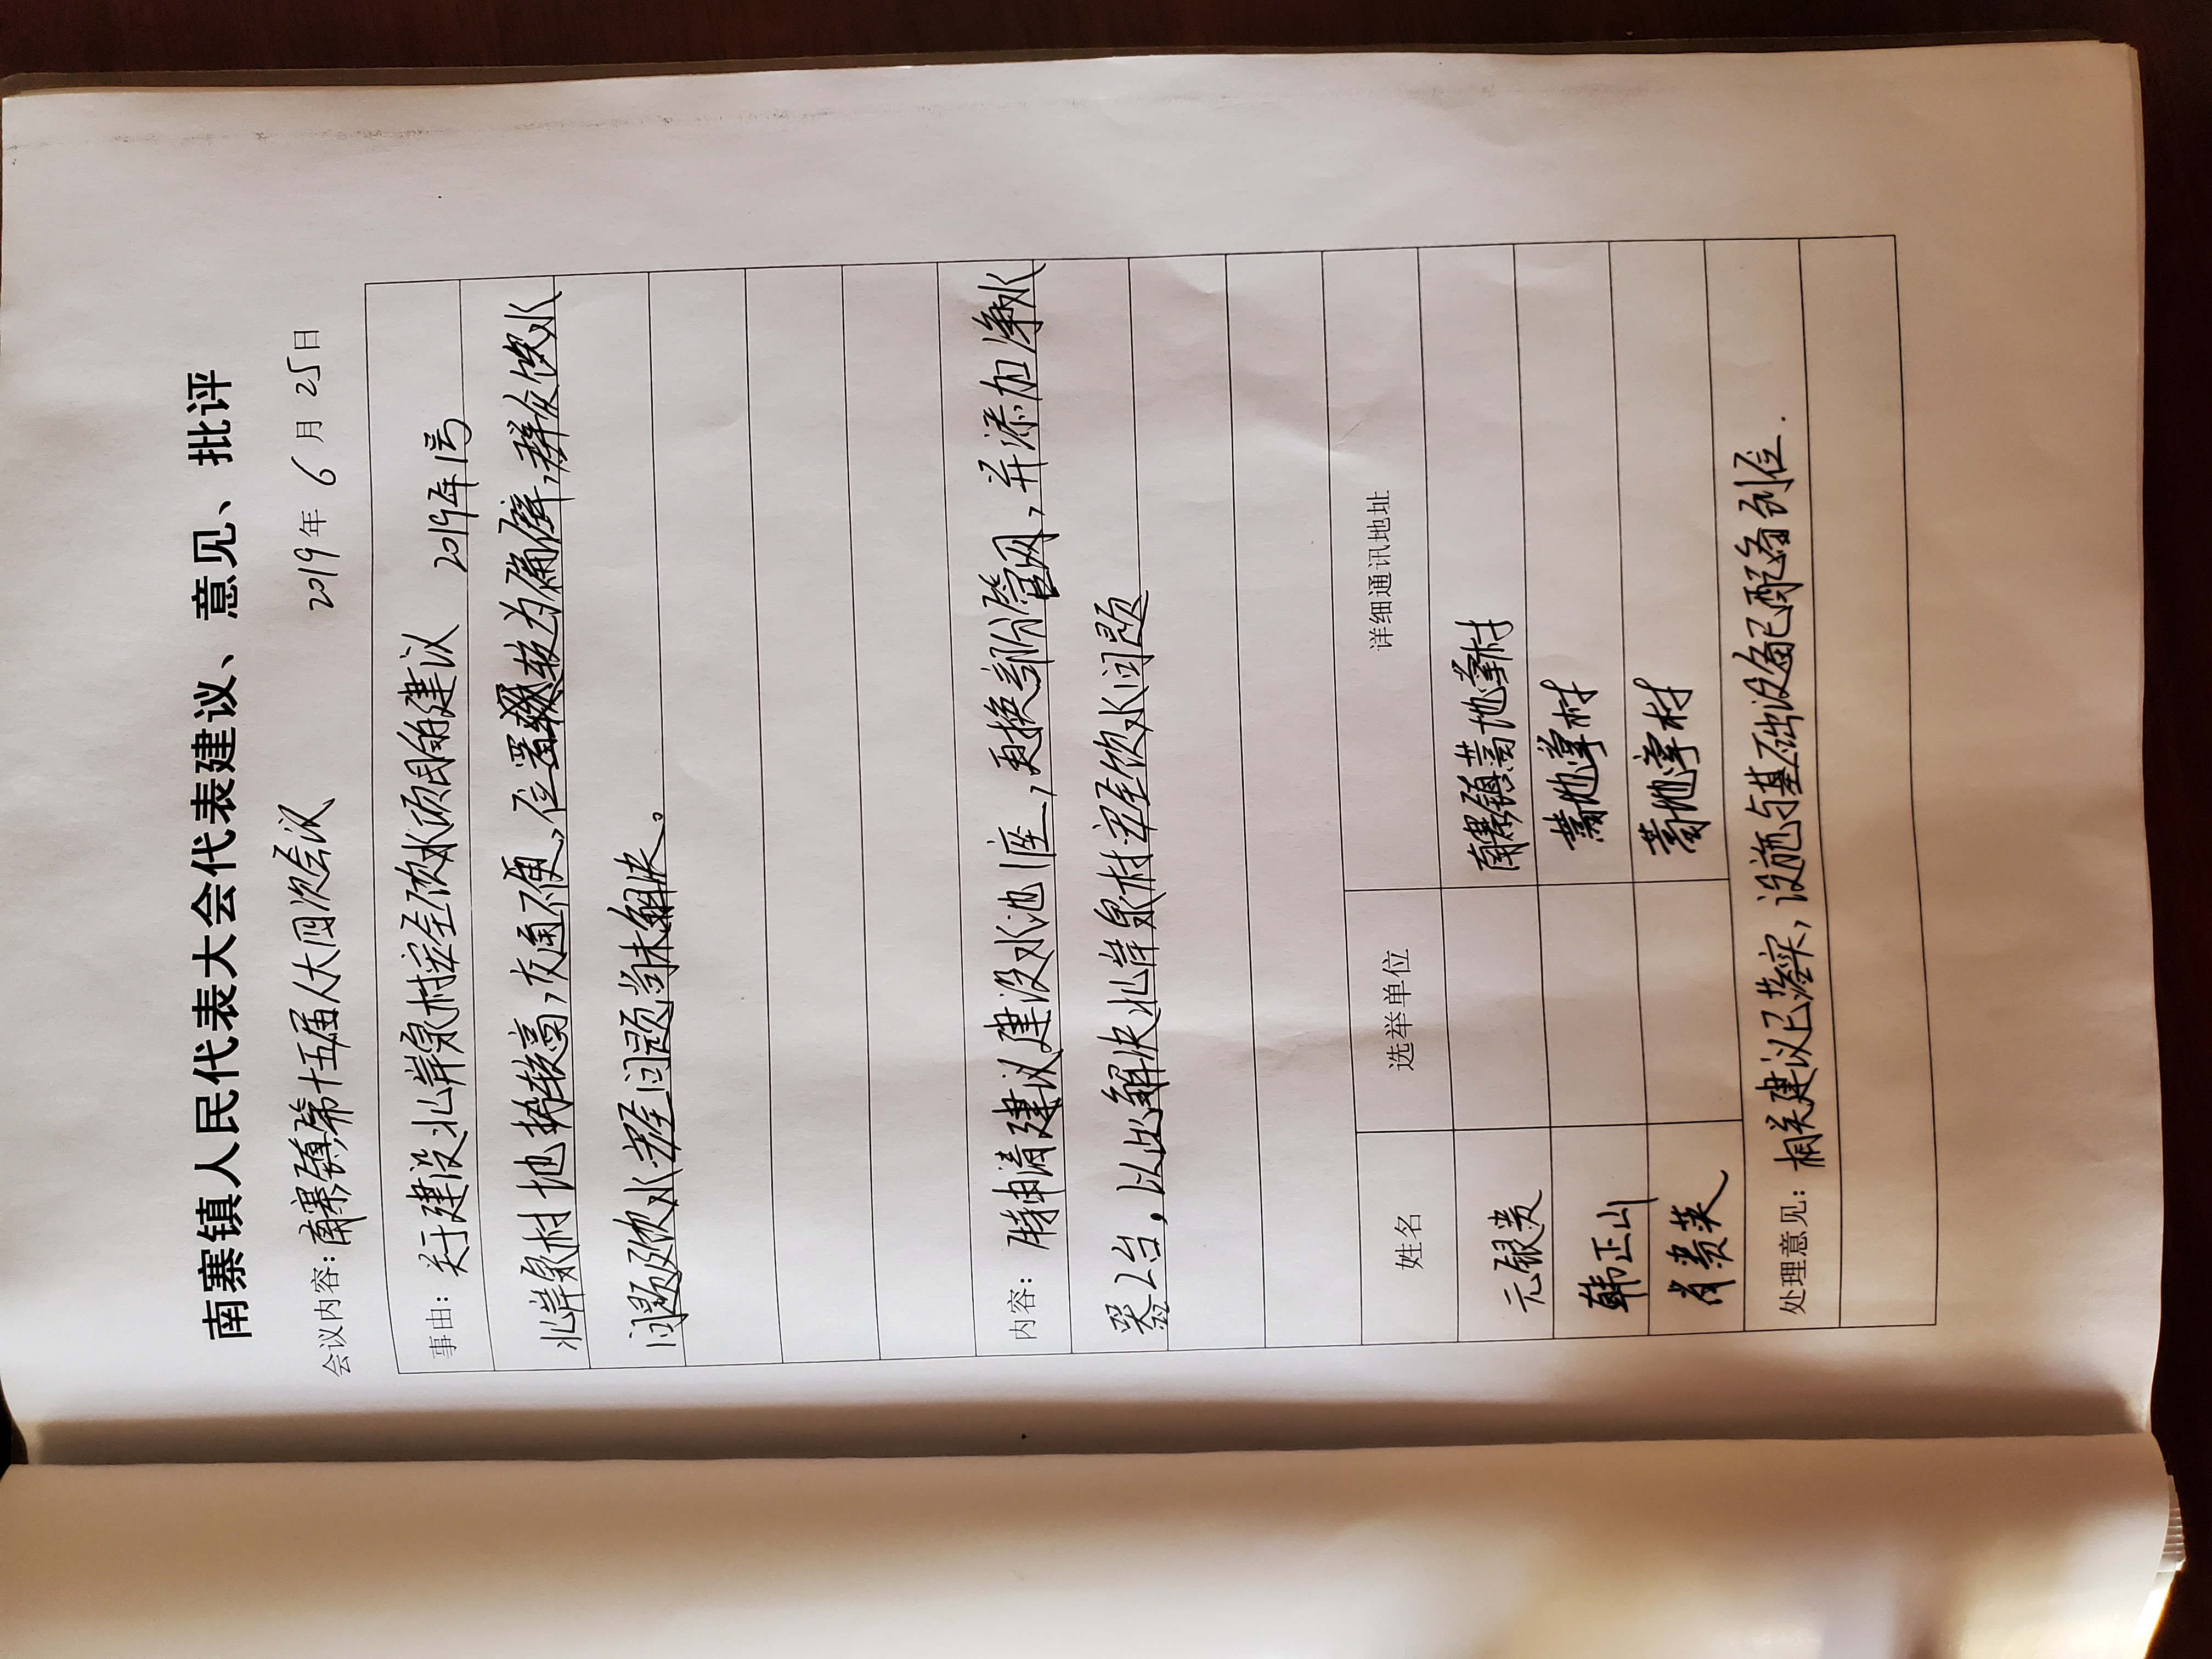 南寨镇人民代表大会代表建议、意见、批评
会议内容：南寨镇第十五届人大四次会议 2019年6月25日
事由：关于建设北岸泉村安全饮水项目的建议 2019年1号
北岸泉村地势较高，交通不便，位置较为偏僻，群众饮水
问题及饮水安全问题尚未解决。
内容：特申请建议建设水池1座，更换部分管网，并添加净水
器1台，以此解决北岸泉村安全饮水问题
姓名 选举单位 详细通讯地址
元银贵 南寨镇蒿地掌村
韩正山 蒿地掌村
肖贵英 蒿地掌村
处理意见：相关建议已落实，设施与基础设备已配备到位.